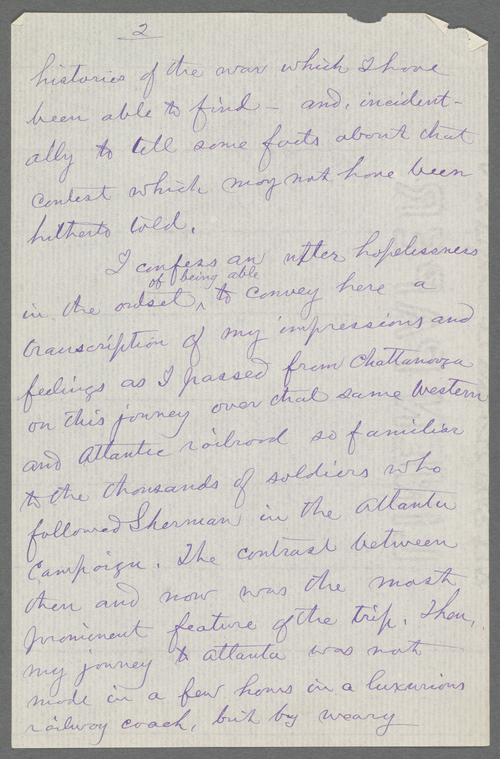 2
histories of the war which I have
been able to find — and, incident-
ally to tell some facts about that
contest which may not have been
hitherto told.
I confess an utter hopelessness
of being able
in the outset, ^ to convey here a
transcription of my impressions and
feelings as I passed from Chattanooga
on this journey over that same Western
and Atlantic railroad so familiar
to the thousands of soldiers who
followed Sherman in the Atlanta
Campaign. The contrast between
then and now was the most
prominent feature of the trip. Then,
my journey to Atlanta was not
made in a few hours in a luxurious
railway coach, but by weary